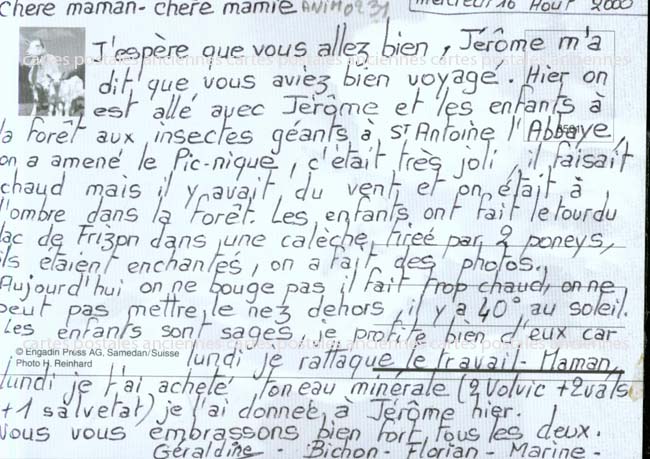 Chere maman - chere mamie ANIMO231 Mercredi 16 Aout 2000
cartes postales anciennes cartes postales anciennes cartes postales anciennes
J'espère que vous allez bien, Jérôme m'a
dit, que vous aviez bien voyagé. Hier on
est allé avec Jérôme et les enfants à
la Foret aux insectes géants à St Antoine l'Abbaye,
on a amené le Pic-nique, c'était très joli, il faisait
chaud mais il y avait du vent et on était à
l'ombre dans la Foret. Les enfants ont fait le tour du
lac de Frizon dans une calèche, tirée par 2 poneys,
ils étaient enchantés, on a fait des photos.
Aujourd'hui on ne bouge pas il fait trop chaud, on ne
peut pas mettre le nez dehors, il y a 40° au soleil.
Les enfants sont sages, je profite bien d'eux car
cartes postales anciennes cartes postales anciennes cartes postales anciennes
© Engadin Press AG, Samedan/Suisse
Photo H. Reinhard
lundi je rattaque le travail - Maman,
lundi je t'ai acheté ton eau minérale (2 Volvic + 2 vals
+ 1 salvetat) je l'ai donnée à Jérôme hier.
Nous vous embrassons bien fort tous les deux.
Géraldine - Bichon - Florian - Marine -